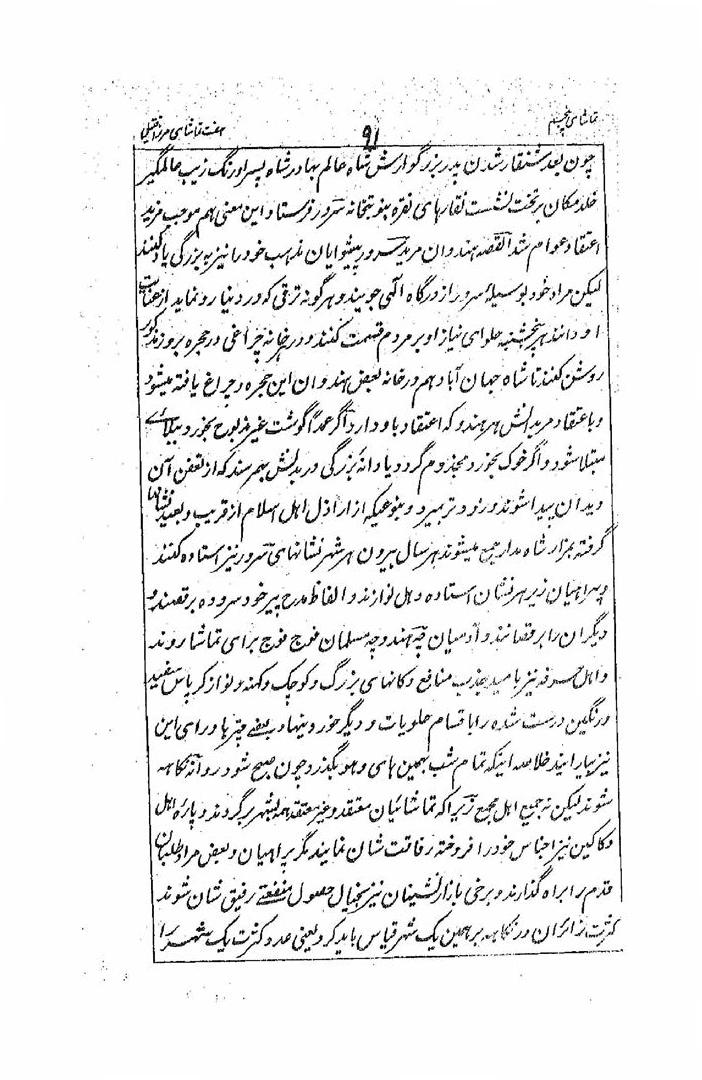 تماشای پنجم
۹۱
هفت تماشای مرزا قتیل
چون بعد شنقار شدن پدر بزرگوارش شاه عالم بهادر شاه پسر اورنگ زیب عالمگیر
خلد مکان بر تخت نشست نقارهای نقره به بتخانه سرور فرستاد این معنی هم موجب مزید
اعتقاد عوام شد القصه هندوان مرید سرور پیشوایان مذهب خود را نیز به بزرگی یاد کنند
لیکن مراد خود بوسیلهٔ سرور از درگاه الٰهی جویند و هر گونه ترقی که در دنیا رو نماید از عنایت
او دانند هر پنجشنبه حلوای نیاز او بر مردم قسمت کنند و در هر خانه چراغی در حجره بروز مذکور
روشن کنند تا شاه جهان آباد هم در خانه بعض هندوان این حجره و چراغ یافته میشود
و باعتقاد مریدانش هر هندو که اعتقاد باو دارد اگر عمداً گوشت غیر مذبوح بخورد ببلائے
مبتلا شود و اگر خوک بخورد مجذوم گردد یا دانهٔ بزرگی در بدنش بهم رسد که از تعفن آن
دیدان پیدا شوند و زود تر بمیرد و بنوعیکه از اراذل اهل اسلام از قریب و بعید نشانها
گرفته بمزار شاه مدار جمع میشوند هر سال بیرون هر شهر نشانهای سرور نیز استاده کنند
و براهیان زیر هر نشان استاده دهل نوازند و الفاظ مدح پیر خود سروده برقصند و
دیگران را برقصانند و آدمیان چه هندو چه مسلمان فوج فوج برای تماشا روند
و اهل حرفه نیز بامید جذب منافع دکانهای بزرگ و کوچک و کهنه و نو از کرپاس سفید
و رنگین درست شده را باقسام حلویات و دیگر خوردنیها و بعضے چیزها ورای این
نیز بیارایند خلاصه اینکه تمام شب بهمین های و هو بگذرد چون صبح شود روانه نگاهه
شوند لیکن نه جمیع اهل مجمع زیرا که تماشائیان معتقد و غیر معتقد همه بشهر برگردند و پاره اهل
دکاکین نیز اجناس خود را فروخته رفاقت شان نمایند مگر براهیان و بعض مراد طلبان
قدم را براه گذارند و برخی بازار نشینان نیز بخیال حصول منفعتے رفیق شان شوند
کثرت زائران در نگاهه بر همین یک شهر قیاس باید کرد یعنی عدد کثرت یک شهر را